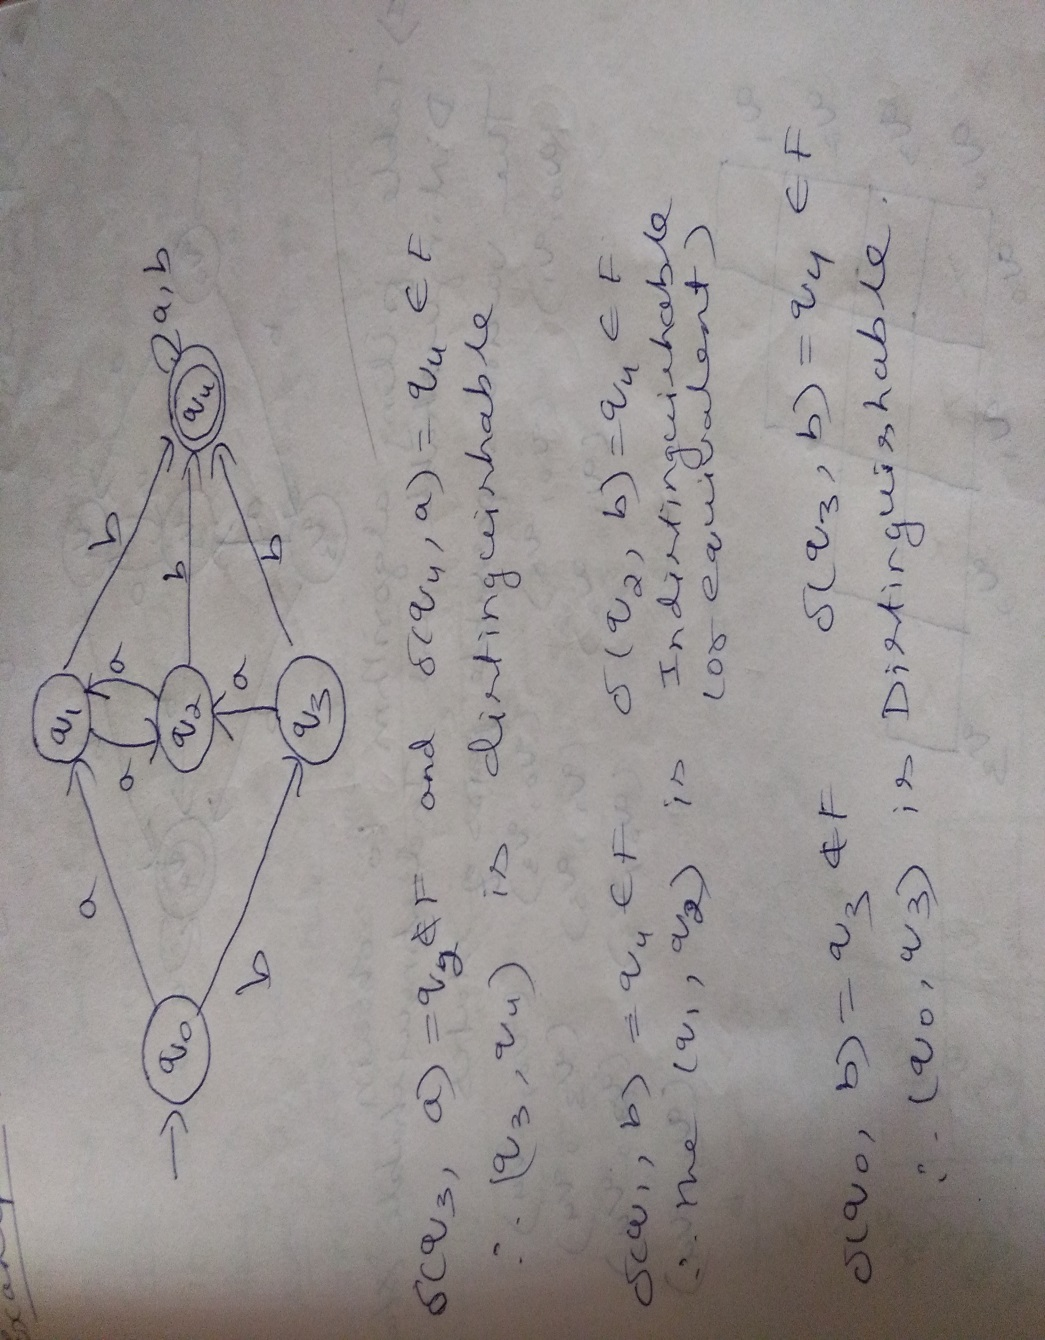 a
b
q0
q1
q2
q3
q4
a
a
a
b
b
b
a,b
δ(q3, a) = q2 ∉ F and δ(q4, a) = q4 ∈ F
∴ (q3, q4) is distinguishable
δ(q1, b) = q4 ∈ F δ(q2, b) = q4 ∈ F
∴ The (q1, q2) is Indistinguishable
(or equivalent)
δ(q0, b) = q3 ∉ F δ(q3, b) = q4 ∈ F
∴ (q0, q3) is Distinguishable.